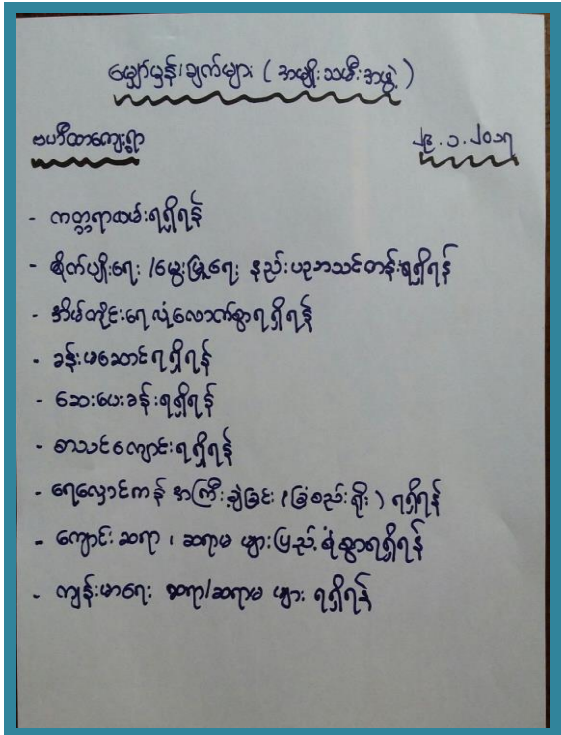 မျှော်မှန်းချက်များ (အမျိုးသမီးအဖွဲ့)
ဗဟင်္ထာကျေးရွာ ၂၄.၁.၂၀၁၇
- ကတ္တရာလမ်းရရှိရန်
- စိုက်ပျိုးရေး/မွေးမြူရေး နည်းပညာသင်တန်းရရှိရန်
- အိမ်တိုင်းရေလုံလောက်စွာရရှိရန်
- ခန်းမဆောင်ရရှိရန်
- ဆေးပေးခန်းရရှိရန်
- စာသင်ကျောင်းရရှိရန်
- ရေလှောင်ကန် အကြီးချဲ့ခြင်း (ခြံစည်းရိုး) ရရှိရန်
- ကျောင်းဆရာ၊ ဆရာမ များပြည့်စုံစွာရရှိရန်
- ကျန်းမာရေး ဆရာ/ဆရာမ များ ရရှိရန်